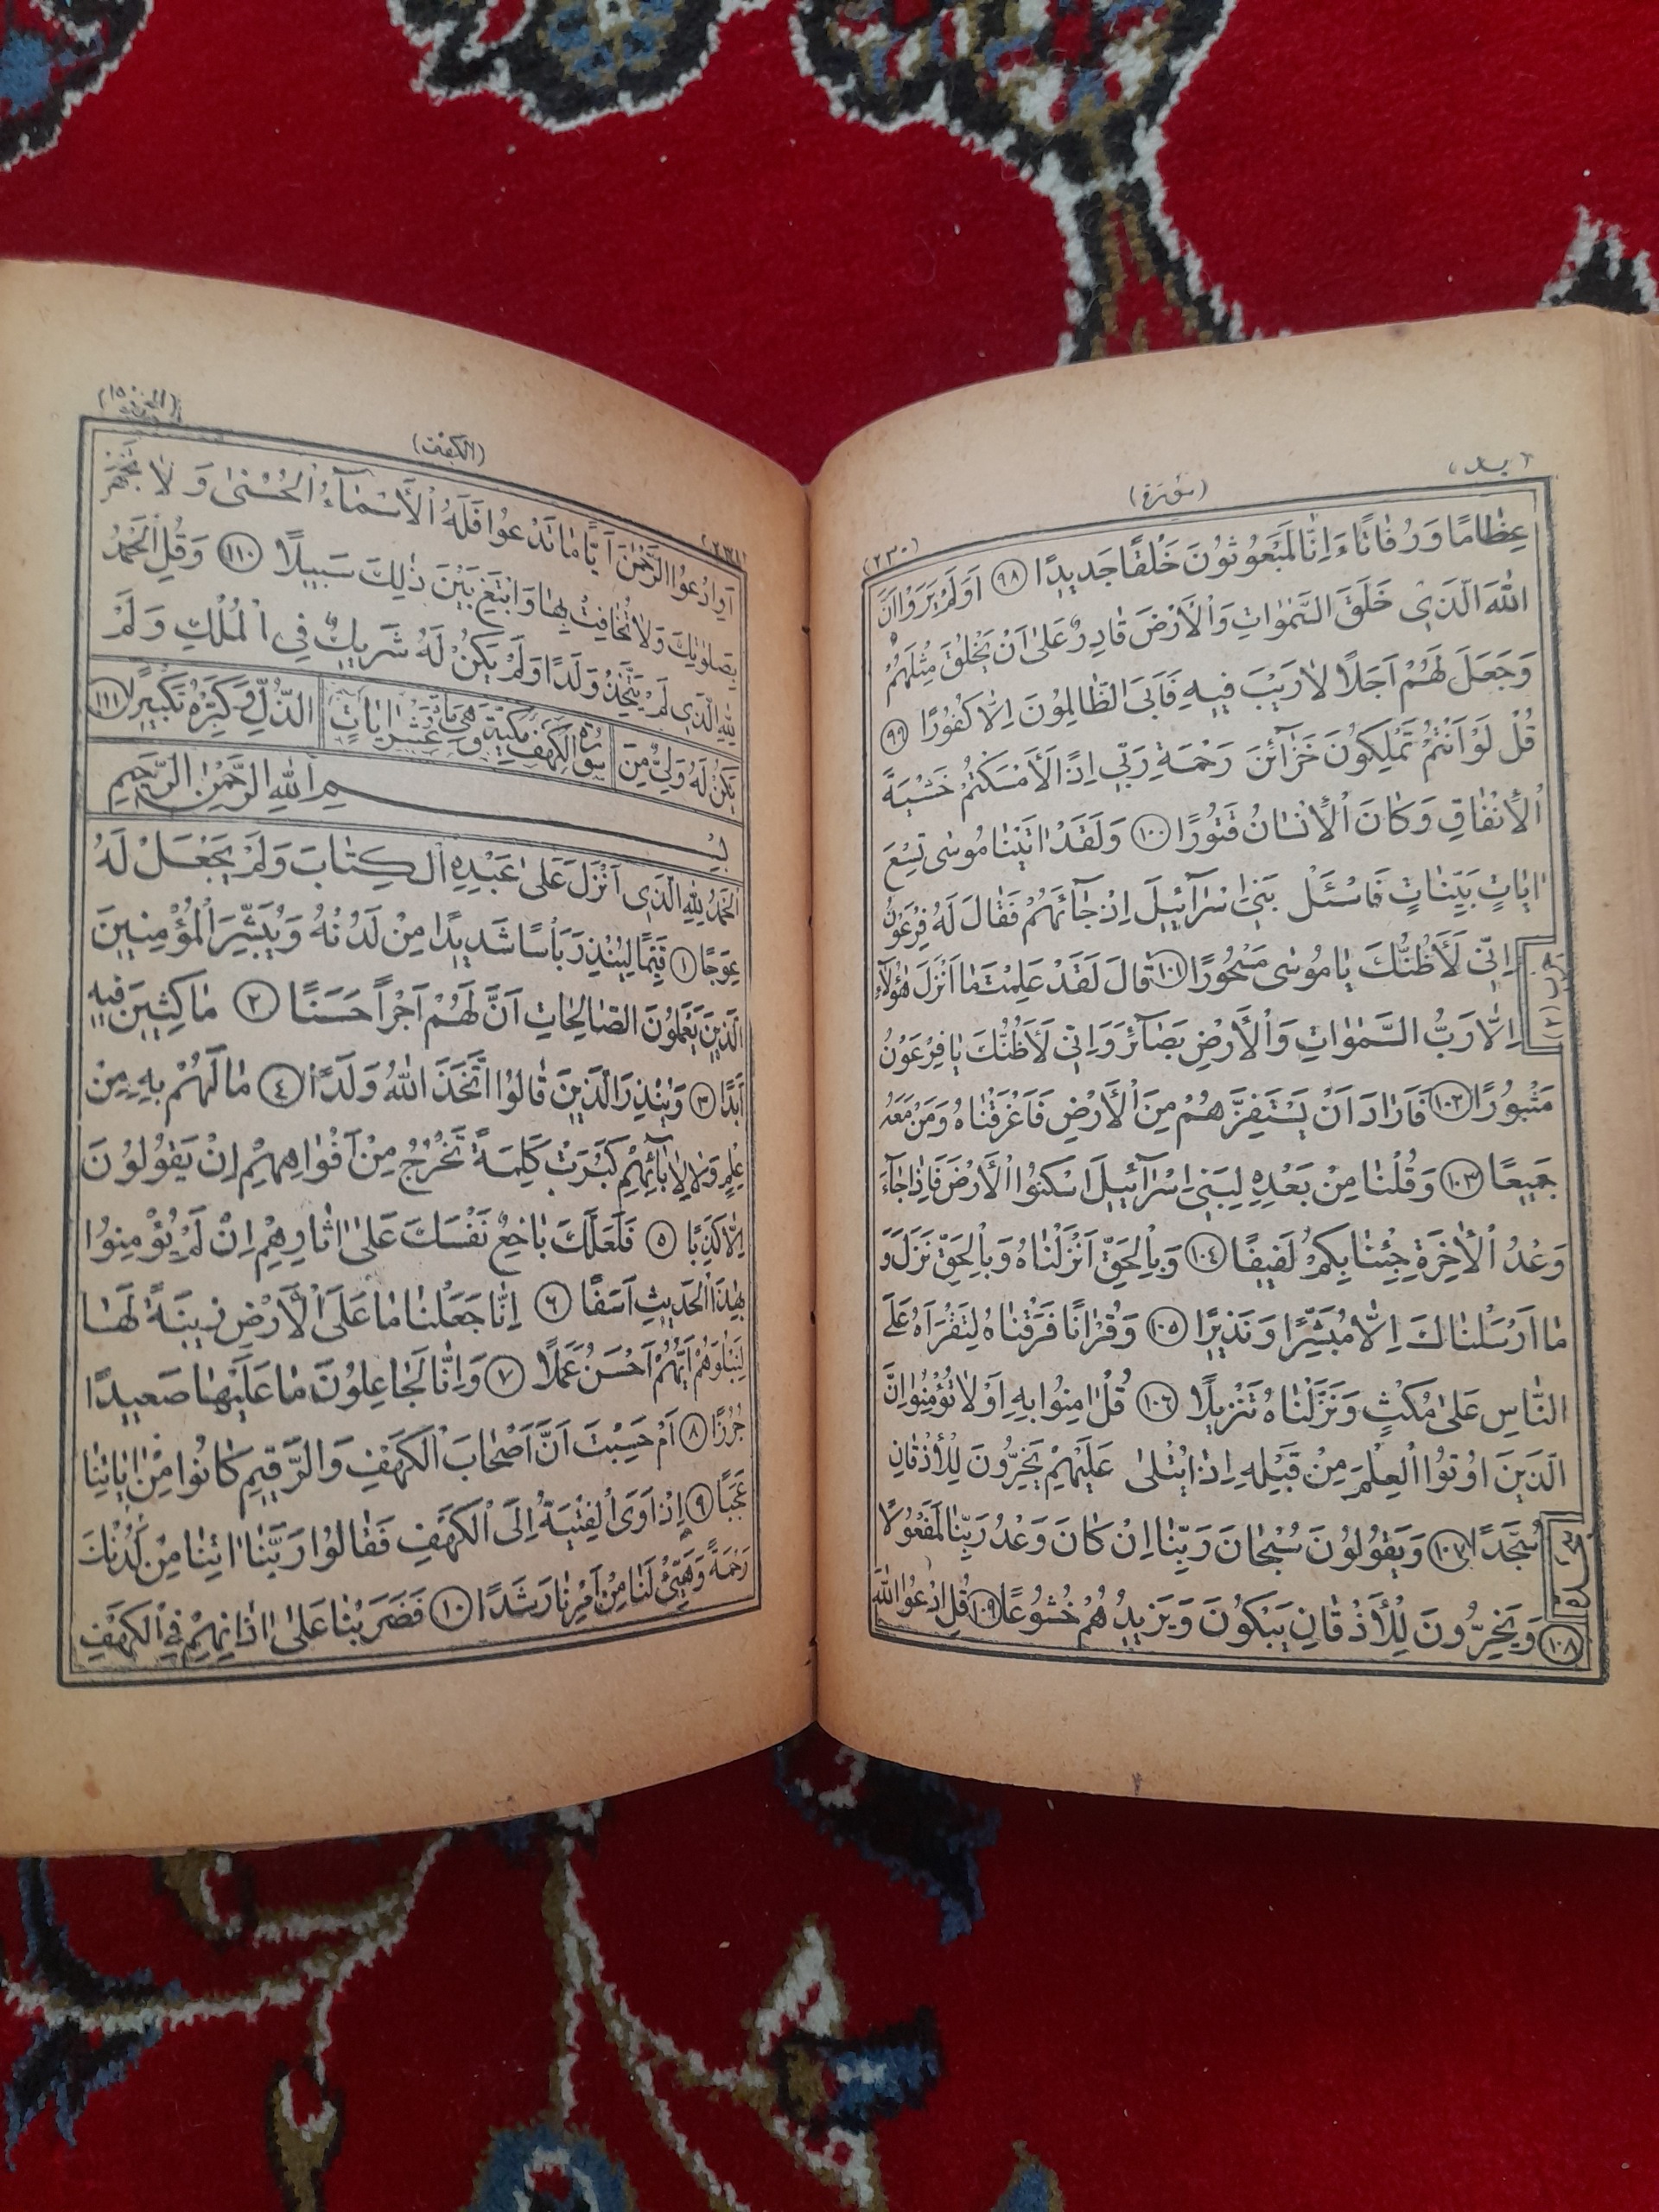 (سورة)
(٢٣٠)
عِظَامًا وَرُفَاتًا ءَاِنَّا لَمَبْعُوثُونَ خَلْقًا جَدِيدًا ٩٨ اَوَلَمْ يَرَوْا اَنَّ
اللّٰهَ الَّذِى خَلَقَ السَّمٰوَاتِ وَالْاَرْضَ قَادِرٌ عَلٰى اَنْ يَخْلُقَ مِثْلَهُمْ
وَجَعَلَ لَهُمْ اَجَلًا لَا رَيْبَ فِيهِ فَاَبَى الظَّالِمُونَ اِلَّا كُفُورًا ٩٩
قُلْ لَوْ اَنْتُمْ تَمْلِكُونَ خَزَآئِنَ رَحْمَةِ رَبِّى اِذًا لَاَمْسَكْتُمْ خَشْيَةَ
الْاِنْفَاقِ وَكَانَ الْاِنْسَانُ قَتُورًا ١٠٠ وَلَقَدْ اٰتَيْنَا مُوسٰى تِسْعَ
اٰيَاتٍ بَيِّنَاتٍ فَاسْئَلْ بَنِى اِسْرَآئِيلَ اِذْ جَآءَهُمْ فَقَالَ لَهُ فِرْعَوْنُ
اِنِّى لَاَظُنُّكَ يَا مُوسٰى مَسْحُورًا ١٠١ قَالَ لَقَدْ عَلِمْتَ مَا اَنْزَلَ هٰؤُلَآءِ
اِلَّا رَبُّ السَّمٰوَاتِ وَالْاَرْضِ بَصَآئِرَ وَاِنِّى لَاَظُنُّكَ يَا فِرْعَوْنُ
مَثْبُورًا ١٠٢ فَاَرَادَ اَنْ يَسْتَفِزَّهُمْ مِنَ الْاَرْضِ فَاَغْرَقْنَاهُ وَمَنْ مَعَهُ
جَمِيعًا ١٠٣ وَقُلْنَا مِنْ بَعْدِهِ لِبَنِى اِسْرَآئِيلَ اسْكُنُوا الْاَرْضَ فَاِذَا جَآءَ
وَعْدُ الْاٰخِرَةِ جِئْنَا بِكُمْ لَفِيفًا ١٠٤ وَبِالْحَقِّ اَنْزَلْنَاهُ وَبِالْحَقِّ نَزَلَ وَ
مَا اَرْسَلْنَاكَ اِلَّا مُبَشِّرًا وَنَذِيرًا ١٠٥ وَقُرْاٰنًا فَرَقْنَاهُ لِتَقْرَاَهُ عَلَى
النَّاسِ عَلٰى مُكْثٍ وَنَزَّلْنَاهُ تَنْزِيلًا ١٠٦ قُلْ اٰمِنُوا بِهِ اَوْ لَا تُؤْمِنُوا اِنَّ
الَّذِينَ اُوتُوا الْعِلْمَ مِنْ قَبْلِهِ اِذَا يُتْلٰى عَلَيْهِمْ يَخِرُّونَ لِلْاَذْقَانِ
سُجَّدًا ١٠٧ وَيَقُولُونَ سُبْحَانَ رَبِّنَا اِنْ كَانَ وَعْدُ رَبِّنَا لَمَفْعُولًا
١٠٨ وَيَخِرُّونَ لِلْاَذْقَانِ يَبْكُونَ وَيَزِيدُهُمْ خُشُوعًا ١٠٩ قُلِ ادْعُوا اللّٰهَ
(٢٣١)
(الكهف)
(الجزء ١٥)
اَوِ ادْعُوا الرَّحْمٰنَ اَيًّا مَا تَدْعُوا فَلَهُ الْاَسْمَآءُ الْحُسْنٰى وَلَا تَجْهَرْ
بِصَلٰوتِكَ وَلَا تُخَافِتْ بِهَا وَابْتَغِ بَيْنَ ذٰلِكَ سَبِيلًا ١١٠ وَقُلِ الْحَمْدُ
لِلّٰهِ الَّذِى لَمْ يَتَّخِذْ وَلَدًا وَلَمْ يَكُنْ لَهُ شَرِيكٌ فِى الْمُلْكِ وَلَمْ
يَكُنْ لَهُ وَلِىٌّ مِنَ
سورة الكهف مكية وهى مائة وعشر ايات
الذُّلِّ وَكَبِّرْهُ تَكْبِيرًا ١١١
بِسْمِ اللّٰهِ الرَّحْمٰنِ الرَّحِيمِ
اَلْحَمْدُ لِلّٰهِ الَّذِى اَنْزَلَ عَلٰى عَبْدِهِ الْكِتَابَ وَلَمْ يَجْعَلْ لَهُ
عِوَجًا ١ قَيِّمًا لِيُنْذِرَ بَاْسًا شَدِيدًا مِنْ لَدُنْهُ وَيُبَشِّرَ الْمُؤْمِنِينَ
الَّذِينَ يَعْمَلُونَ الصَّالِحَاتِ اَنَّ لَهُمْ اَجْرًا حَسَنًا ٢ مَاكِثِينَ فِيهِ
اَبَدًا ٣ وَيُنْذِرَ الَّذِينَ قَالُوا اتَّخَذَ اللّٰهُ وَلَدًا ٤ مَا لَهُمْ بِهِ مِنْ
عِلْمٍ وَلَا لِاٰبَآئِهِمْ كَبُرَتْ كَلِمَةً تَخْرُجُ مِنْ اَفْوَاهِهِمْ اِنْ يَقُولُونَ
اِلَّا كَذِبًا ٥ فَلَعَلَّكَ بَاخِعٌ نَفْسَكَ عَلٰى اٰثَارِهِمْ اِنْ لَمْ يُؤْمِنُوا
بِهٰذَا الْحَدِيثِ اَسَفًا ٦ اِنَّا جَعَلْنَا مَا عَلَى الْاَرْضِ زِينَةً لَهَا
لِنَبْلُوَهُمْ اَيُّهُمْ اَحْسَنُ عَمَلًا ٧ وَاِنَّا لَجَاعِلُونَ مَا عَلَيْهَا صَعِيدًا
جُرُزًا ٨ اَمْ حَسِبْتَ اَنَّ اَصْحَابَ الْكَهْفِ وَالرَّقِيمِ كَانُوا مِنْ اٰيَاتِنَا
عَجَبًا ٩ اِذْ اَوَى الْفِتْيَةُ اِلَى الْكَهْفِ فَقَالُوا رَبَّنَا اٰتِنَا مِنْ لَدُنْكَ
رَحْمَةً وَهَيِّئْ لَنَا مِنْ اَمْرِنَا رَشَدًا ١٠ فَضَرَبْنَا عَلٰى اٰذَانِهِمْ فِى الْكَهْفِ